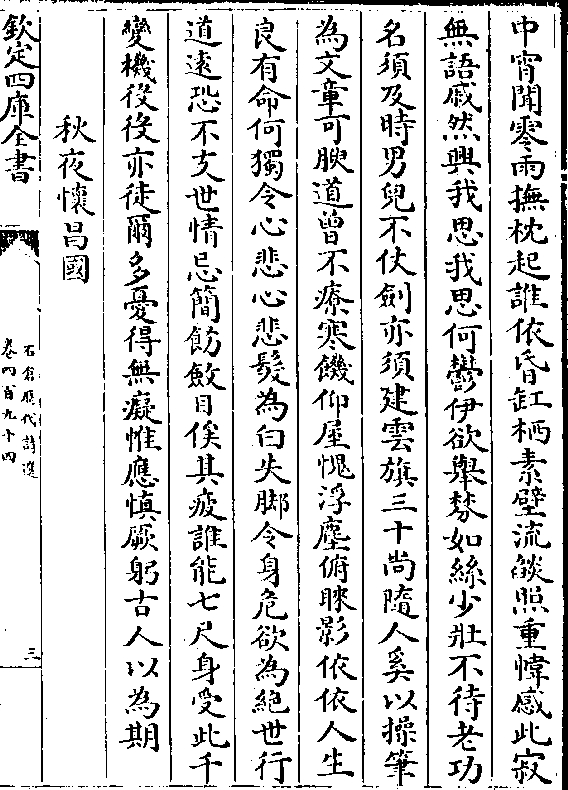 中宵聞零雨撫枕起誰依昏缸栖素壁流燄照重幃感此寂
無語戚然興我思我思何鬱伊欲舉棼如絲少壯不待老功
名須及時男兒不仗劍亦須建雲旗三十尚隨人奚以操筆
為文章可腴道曾不療寒饑仰屋愧浮塵俯睞影依依人生
良有命何獨令心悲心悲髮為白失脚令身危欲為絕世行
道逺恐不支世情忌簡飭斂目俟其疲誰能七尺身受此千
變機役役亦徒爾多憂得無癡惟應慎厥躬古人以為期
秋夜懷昌國
欽定四庫全書
石倉歷代詩選
卷四百九十四
三